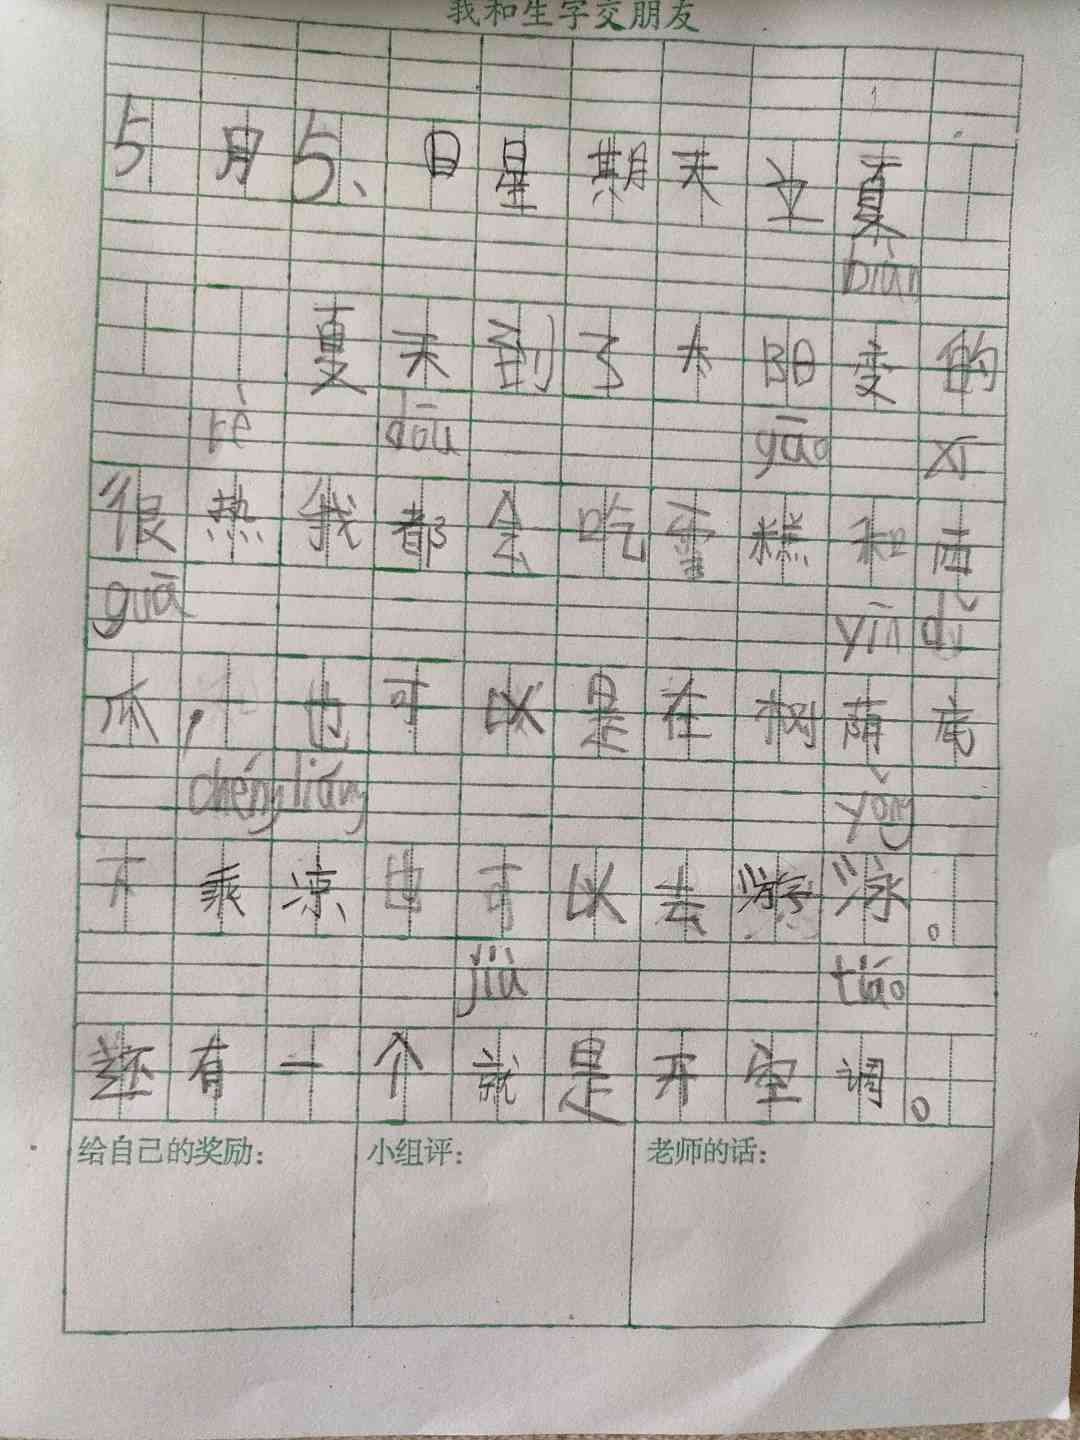 我和生字交朋友
5月5、日星期天立夏
biàn
夏天到了太阳变的
rè dōu gāo xī
很热我都会吃雪糕和西
guā yīn dǐ
瓜,也可以是在树荫底
chéng liáng yǒng
下乘凉也可以去游泳。
jiù tiáo
还有一个就是开空调。
给自己的奖励: 小组评: 老师的话: